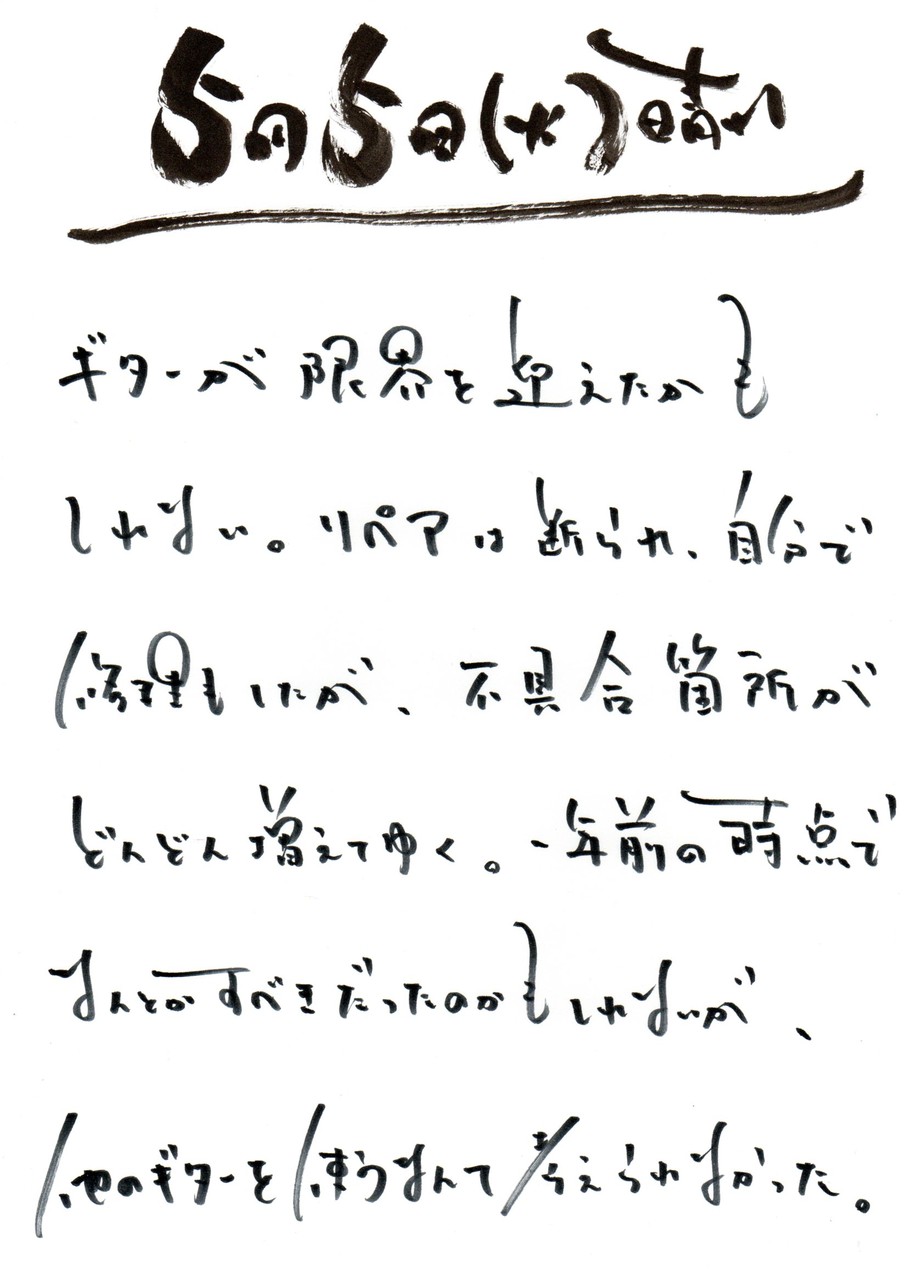 5月5日(火)晴れ
ギターが限界を迎えたかも
しれない。リペアは断られ、自分で
修理もしたが、不具合箇所が
どんどん増えてゆく。一年前の時点で
なんとかすべきだったのかもしれないが、
他のギターを使うなんて考えられなかった。